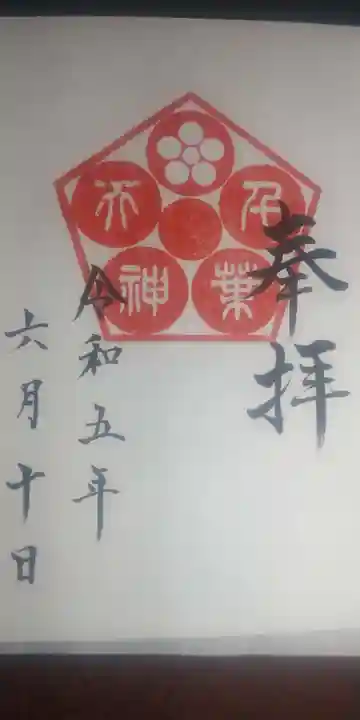 奉拝
千葉天神
令和五年
六月十日